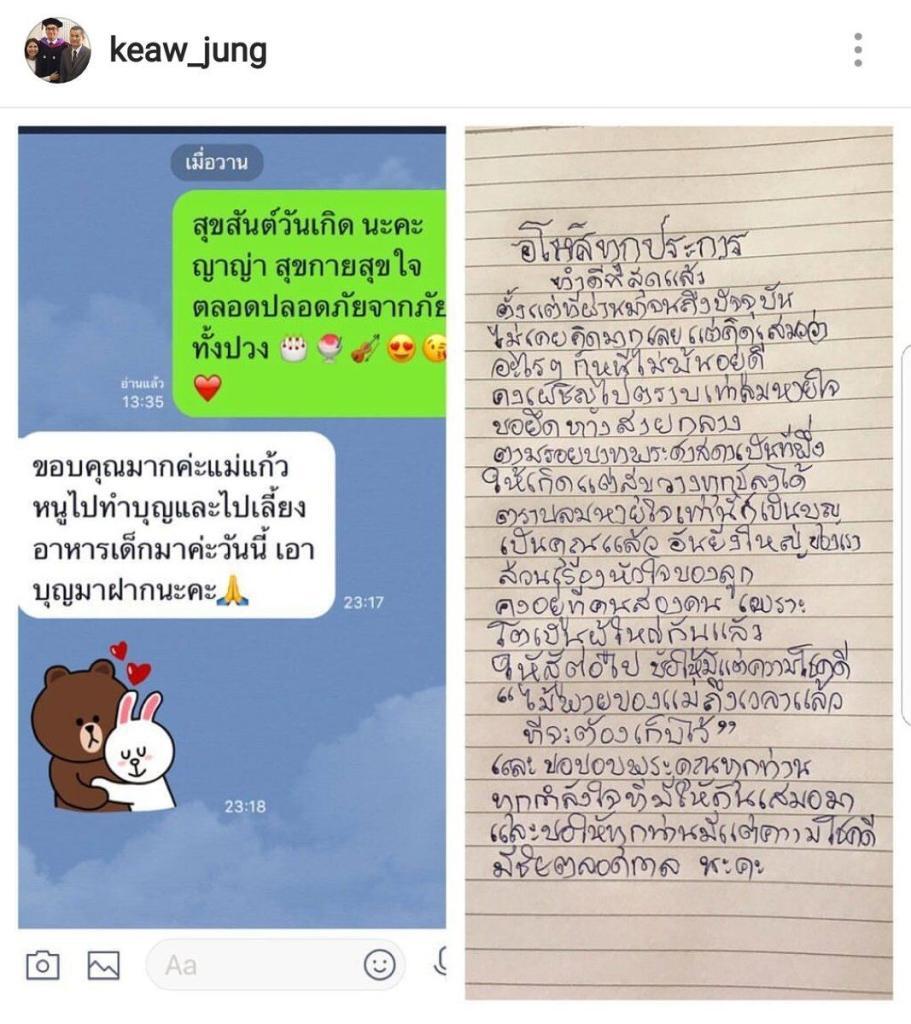 keaw_jung
เมื่อวาน
สุขสันต์วันเกิด นะคะ
ญาญ่า สุขกายสุขใจ
ตลอดปลอดภัยจากภัย
ทั้งปวง 🎂🍧🎻😍😘
❤️
อ่านแล้ว
13:35
ขอบคุณมากค่ะแม่แก้ว
หนูไปทำบุญและไปเลี้ยง
อาหารเด็กมาค่ะวันนี้ เอา
บุญมาฝากนะคะ🙏
23:17
23:18
Aa
อโหสิทุกประการ
ทำดีที่สุดแล้ว
ตั้งแต่ที่ผ่านมาจนถึงปัจจุบัน
ไม่เคยคิดมากเลย แต่คิดเสมอว่า
อะไรๆ ก็หนีไม่พ้นอยู่ดี
คงเผชิญไปตราบเท่าลมหายใจ
ขอยึดทางสายกลาง
ตามรอยบาทพระศาสดาเป็นที่พึ่ง
ให้เกิดแต่สุขวางทุกข์ลงได้
ตราบลมหายใจเท่านี้ก็เป็นบุญ
เป็นคุณแล้ว อันยิ่งใหญ่ของเรา
ส่วนเรื่องหัวใจของลูก
คงอยู่ที่คนสองคน เพราะ
โตเป็นผู้ใหญ่กันแล้ว
ให้สัตต่อไป ขอให้มีแต่ความโชคดี
“ไม้พายของแม่ถึงเวลาแล้ว
ที่จะต้องเก็บไว้”
และ ขอขอบพระคุณทุกท่าน
ทุกกำลังใจที่มีให้กันเสมอมา
และขอให้ทุกท่านมีแต่ความโชคดี
มีชัยตลอดกาล นะคะ